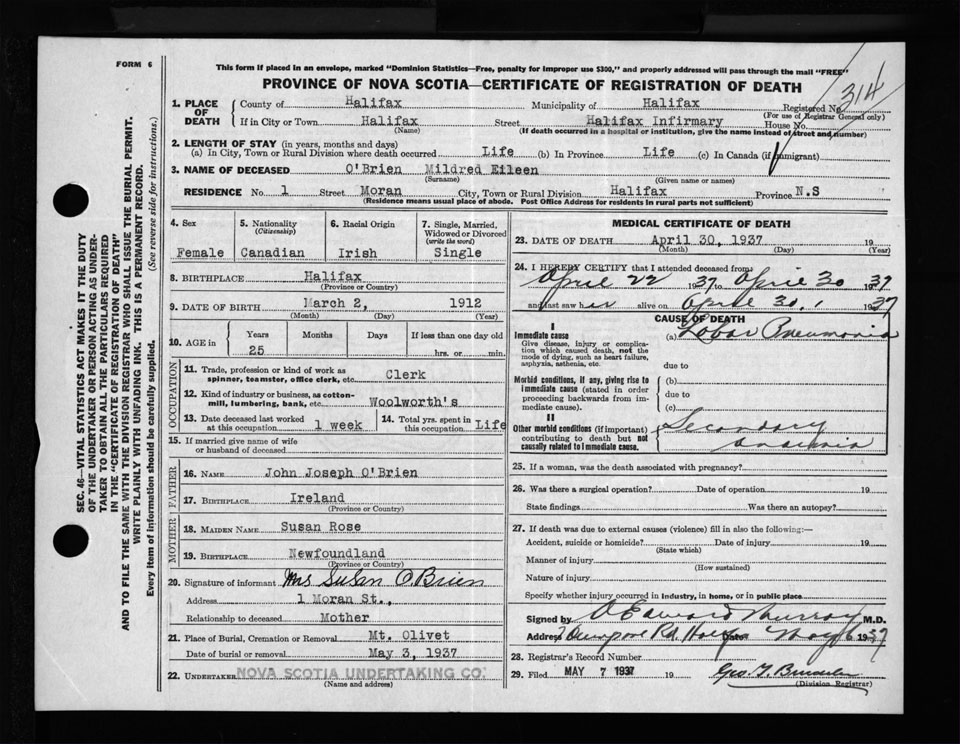 FORM 6
This form if placed in an envelope, marked "Dominion Statistics—Free, penalty for improper use $300," and properly addressed will pass through the mail "FREE"
PROVINCE OF NOVA SCOTIA—CERTIFICATE OF REGISTRATION OF DEATH
314
SEC. 46—VITAL STATISTICS ACT MAKES IT THE DUTY
OF THE UNDERTAKER OR PERSON ACTING AS UNDER-
TAKER TO OBTAIN ALL THE PARTICULARS REQUIRED
IN THE "CERTIFICATE OF REGISTRATION OF DEATH"
AND TO FILE THE SAME WITH THE DIVISION REGISTRAR WHO SHALL ISSUE THE BURIAL PERMIT.
WRITE PLAINLY WITH UNFADING INK. THIS IS A PERMANENT RECORD.
Every item of information should be carefully supplied. (See reverse side for instructions.)
1. PLACE OF DEATH
County of Halifax Municipality of Halifax Registered No.
(For use of Registrar General only)
If in City or Town Halifax Street Halifax Infirmary House No.
(Name) (If death occurred in a hospital or institution, give the name instead of street and number)
2. LENGTH OF STAY (in years, months and days)
(a) In City, Town or Rural Division where death occurred Life (b) In Province Life (c) In Canada (if immigrant)
3. NAME OF DECEASED O'Brien Mildred Eileen
(Surname) (Given name or names)
RESIDENCE No. 1 Street Moran City, Town or Rural Division Halifax Province N.S
(Residence means usual place of abode. Post Office Address for residents in rural parts not sufficient)
4. Sex 5. Nationality 6. Racial Origin 7. Single, Married,
(Citizenship) Widowed or Divorced
(write the word)
Female Canadian Irish Single
8. BIRTHPLACE Halifax
(Province or Country)
9. DATE OF BIRTH March 2, 1912
(Month) (Day) (Year)
10. AGE in Years Months Days If less than one day old
25 hrs. or min.
OCCUPATION
11. Trade, profession or kind of work as
spinner, teamster, office clerk, etc. Clerk
12. Kind of industry or business, as cotton-
mill, lumbering, bank, etc. Woolworth's
13. Date deceased last worked
at this occupation 1 week
14. Total yrs. spent in
this occupation Life
15. If married give name of wife
or husband of deceased
FATHER
16. NAME John Joseph O'Brien
17. BIRTHPLACE Ireland
(Province or Country)
MOTHER
18. MAIDEN NAME Susan Rose
19. BIRTHPLACE Newfoundland
(Province or Country)
20. Signature of informant Mrs Susan O'Brien
Address 1 Moran St.,
Relationship to deceased Mother
21. Place of Burial, Cremation or Removal Mt. Olivet
Date of burial or removal May 3, 1937
22. UNDERTAKER NOVA SCOTIA UNDERTAKING CO.
(Name and address)
MEDICAL CERTIFICATE OF DEATH
23. DATE OF DEATH April 30, 1937 19
(Month) (Day) (Year)
24. I HEREBY CERTIFY that I attended deceased from
April 22 1937 to April 30 1937
and last saw her alive on April 30, 1937
CAUSE OF DEATH
I
Immediate cause (a) Lobar Pneumonia
Give disease, injury or complica-
tion which caused death, not the
mode of dying, such as heart failure,
asphyxia, asthenia, etc.
due to
Morbid conditions, if any, giving rise to (b)
immediate cause (stated in order
proceeding backwards from im-
mediate cause).
due to
(c)
II
Other morbid conditions (if important)
contributing to death but not
causally related to immediate cause.
Secondary
anaemia
25. If a woman, was the death associated with pregnancy?
26. Was there a surgical operation? Date of operation 19
State findings Was there an autopsy?
27. If death was due to external causes (violence) fill in also the following:—
Accident, suicide or homicide? Date of injury 19
(State which)
Manner of injury
(How sustained)
Nature of injury
Specify whether injury occurred in industry, in home, or in public place
Signed by Edward Murray M.D.
Address Rd. Date May 6 1937
28. Registrar's Record Number
29. Filed MAY 7 1937 19
(Division Registrar)